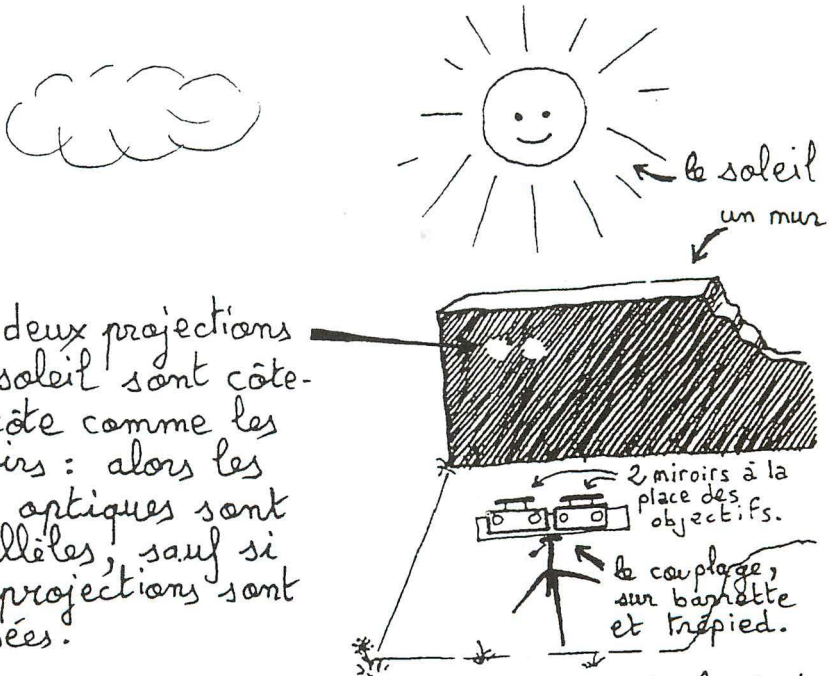 le soleil
un mur
deux projections
soleil sont côte-
côte comme les
irs : alors les
optiques sont
llèles, sauf si
projections sont
sées.
2 miroirs à la
place des
objectifs.
le couplage,
sur barrette
et trépied.